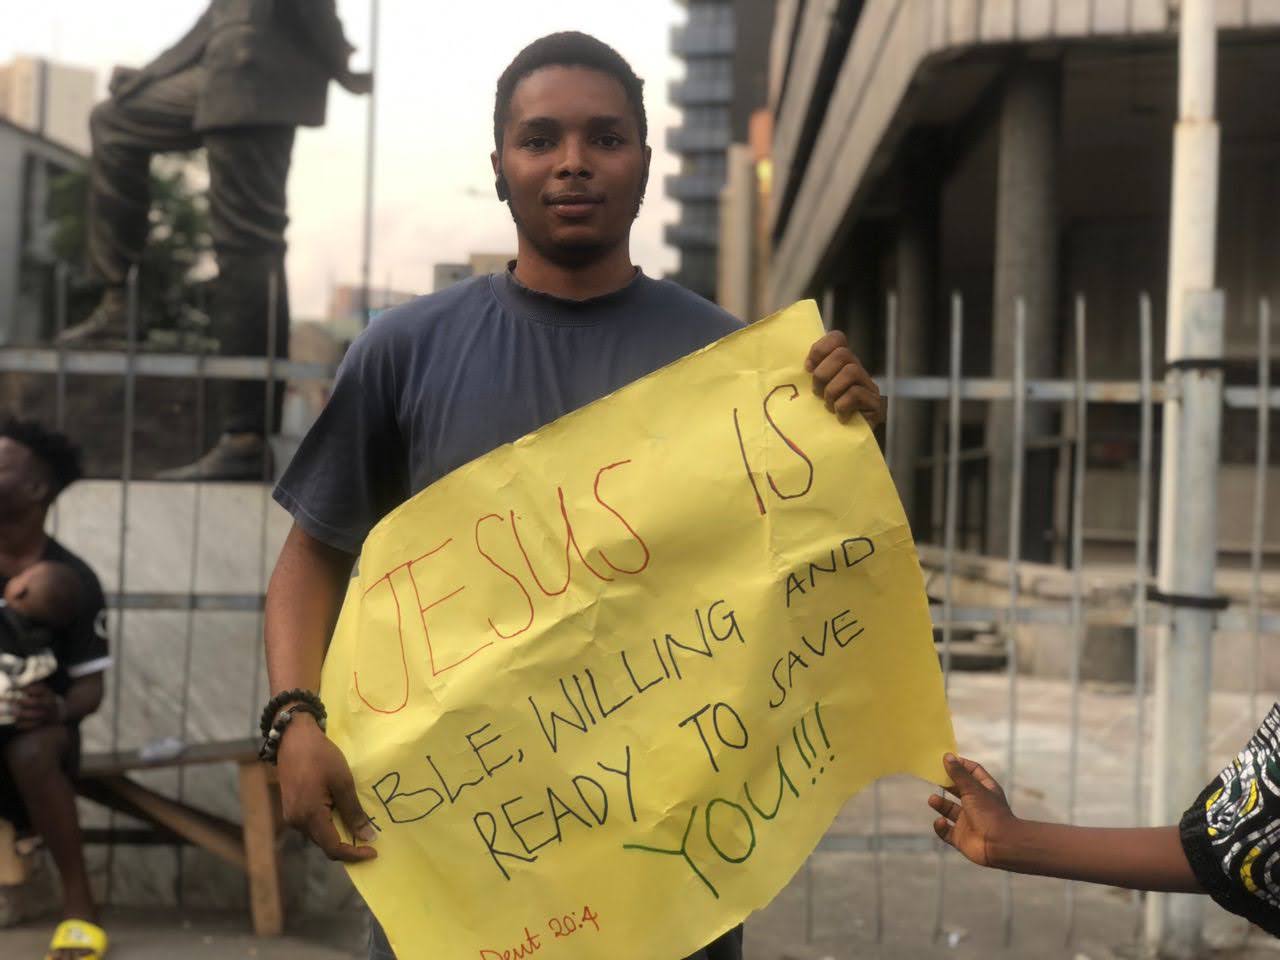 JESUS IS
ABLE, WILLING AND
READY TO SAVE
YOU!!!
Deut 20:4